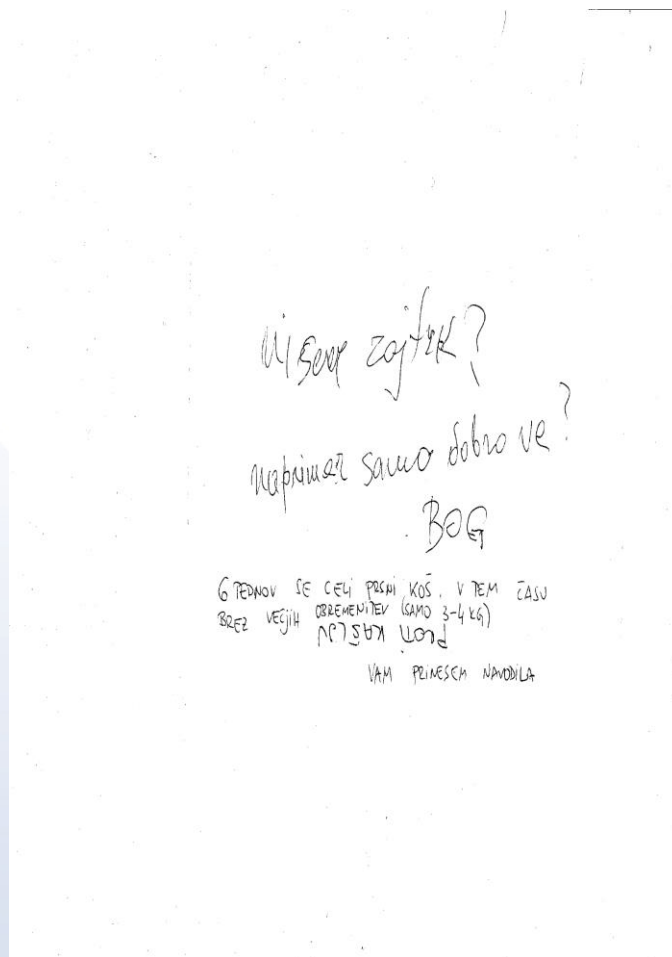 zajtrk?
naprimer samo dobro ve?
BOG
6 TEDNOV SE CELI PRSNI KOŠ. V TEM ČASU
BREZ VEČJIH OBREMENITEV (SAMO 3-4 KG)
PROTI KAŠLJU
VAM PRINESEM NAVODILA